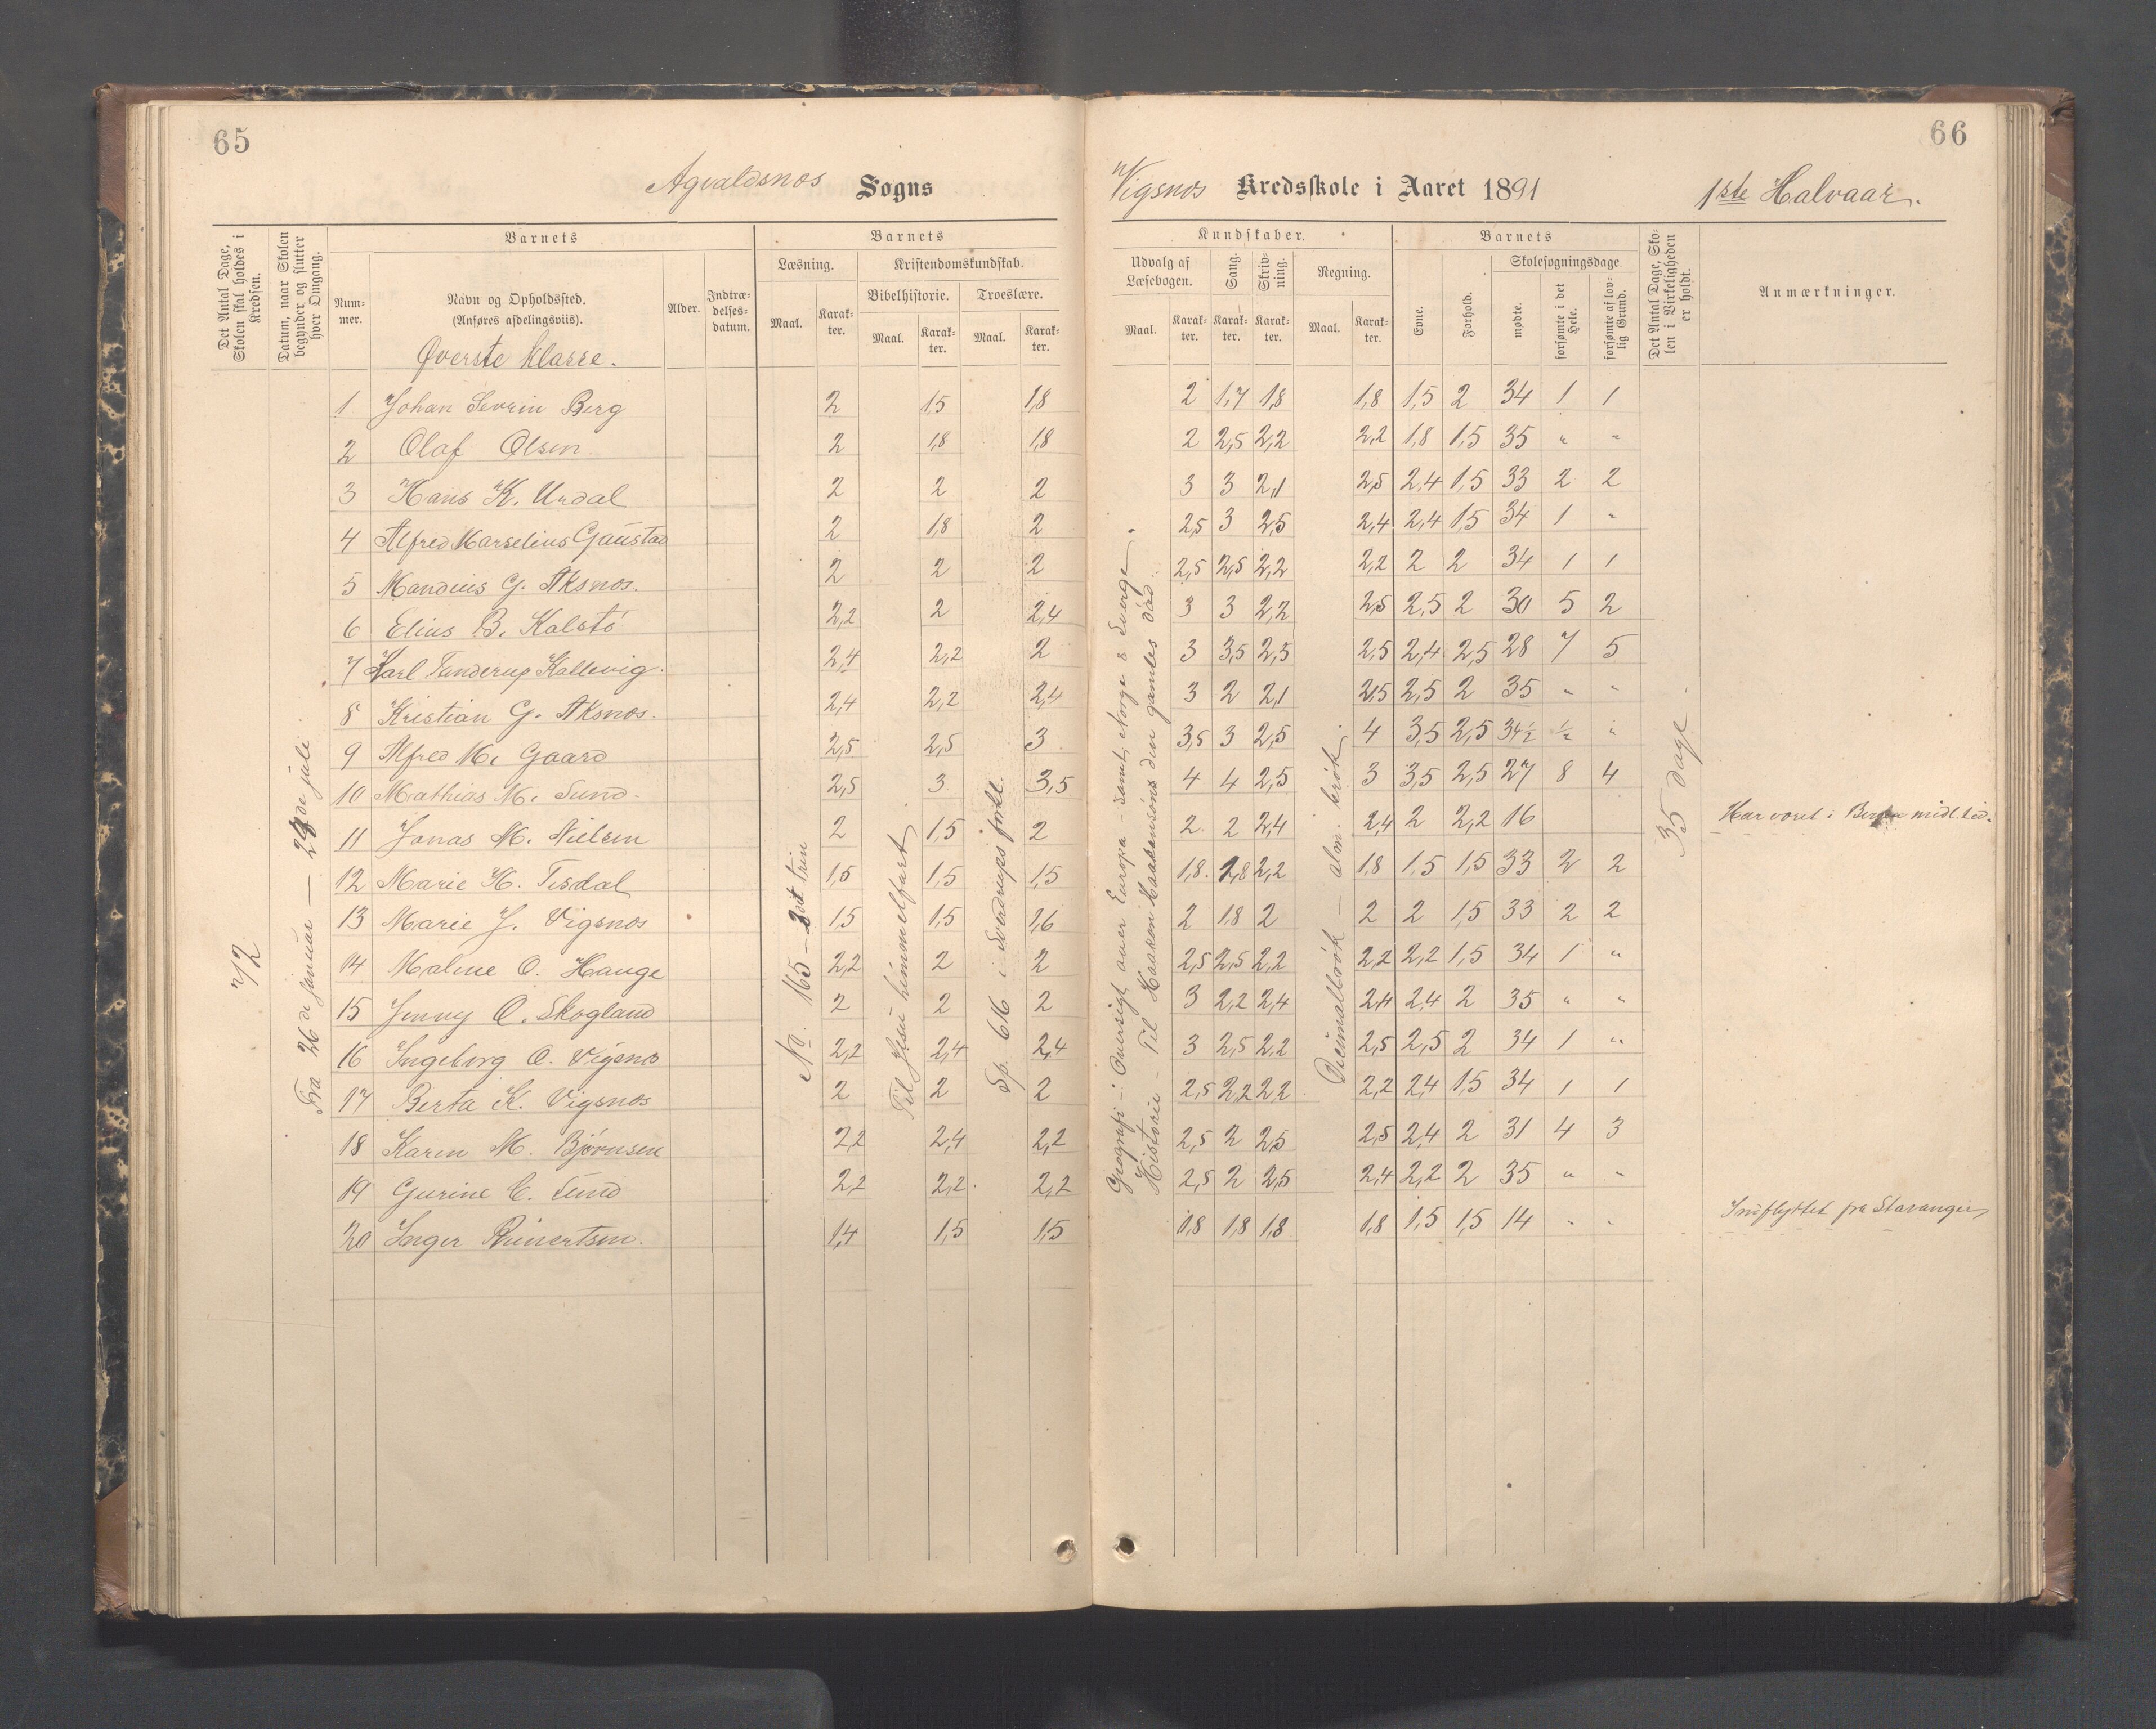 65
66
Agvaldsnes Sogns
Vigsnes Kredsskole i Aaret 1891
1ste Halvaar.
Det Antal Dage, Skolen skal holdes i Kredsen.
Datum, naar Skolen begynder og slutter hver Omgang.
Barnets
Num- mer.
Navn og Opholdssted.
(Anføres afdelingsviis).
Øverste klasse.
Alder.
Indtræ- delses- datum.
Barnets
Læsning.
Maal.
Karak- ter.
Kristendomskundskab.
Bibelhistorie.
Maal.
Karak- ter.
Troeslære.
Maal.
Karak- ter.
Kundskaber.
Udvalg af Læsebogen.
Maal.
Karak- ter.
Sang.
Karak- ter.
Skriv- ning.
Karak- ter.
Regning.
Maal.
Karak- ter.
Barnets
Evne.
Forhold.
Skolesøgningsdage.
mødte.
forsømte i det Hele.
forsømte af lov- lig Grund.
Det Antal Dage, Sko- len i Virkeligheden er holdt.
Anmærkninger.
72
Fra 26de januar — de juli
No. 165 – trin
Til Jesu himmelfart
Sp. 616 i Sverdrups forkl.
Geografi –: Oversigt over Europa – samt Norge & Sverge.
Historie – Til Haakon Haakonsøns den gamles død.
Decimalbrøk — alm. brøk.
35 dage
1 Johan Sevrin Berg 2 1,5 1,8 2 1,7 1,8 1,8 1,5 2 34 1 1
2 Olaf Olsen 2 1,8 1,8 2 2,5 2,2 2,2 1,8 1,5 35 " "
3 Hans K. Urdal 2 2 2 3 3 2,1 2,5 2,4 1,5 33 2 2
4 Alfred Marselius Gaustad 2 1,8 2 2,5 3 2,5 2,4 2,4 1,5 34 1 "
5 Mandius G. Aksnes. 2 2 2 2,5 2,5 2,2 2,2 2 2 34 1 1
6 Elius B. Kalstø 2,2 2 2,4 3 3 2,2 2,5 2,5 2 30 5 2
7 Karl Tanderup Kallevig. 2,4 2,2 2 3 3,5 2,5 2,5 2,4 2,5 28 7 5
8 Kristian G. Aksnes. 2,4 2,2 2,4 3 2 2,1 2,5 2,5 2 35 " "
9 Alfred M. Gaard 2,5 2,5 3 3,5 3 2,5 4 3,5 2,5 34½ ½ "
10 Mathias M. Sund. 2,5 3 3,5 4 4 2,5 3 3,5 2,5 27 8 4
11 Jonas M. Nielsen 2 1,5 2 2 2 2,4 2,4 2 2,2 16 Har været i Bergen midl.tid.
12 Marie H. Tisdal 1,5 1,5 1,5 1,8 1,8 2,2 1,8 1,5 1,5 33 2 2
13 Marie J. Vigsnes 1,5 1,5 1,6 2 1,8 2 2 2 1,5 33 2 2
14 Malene O. Hauge 2,2 2 2 2,5 2,5 2,2 2,2 2,2 1,5 34 1 "
15 Jenny O. Skogland 2 2 2 3 2,2 2,4 2,4 2,4 2 35 " "
16 Ingeborg O. Vigsnes 2,2 2,4 2,4 3 2,5 2,2 2,5 2,5 2 34 1 "
17 Berta K. Vigsnes 2 2 2 2,5 2,2 2,2 2,2 2,4 1,5 34 1 1
18 Karen M. Bjørnsen 2,2 2,4 2,2 2,5 2 2,5 2,5 2,4 2 31 4 3
19 Gurine C. Sund 2,2 2,2 2,2 2,5 2 2,5 2,4 2,2 2 35 " "
20 Inger Reinertsen. 1,4 1,5 1,5 1,8 1,8 1,8 1,8 1,5 1,5 14 " " Indflyttet fra Stavanger